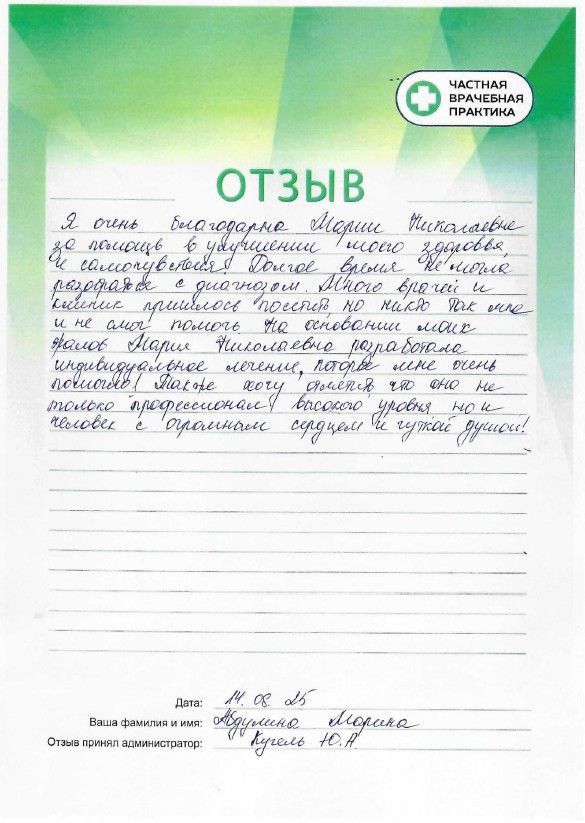 ЧАСТНАЯ
ВРАЧЕБНАЯ
ПРАКТИКА
ОТЗЫВ
Я очень благодарна Марии Николаевне
за помощь в улучшении моего здоровья
и самочувствия! Долгое время не могла
разобраться с диагнозом. Много врачей и
клиник пришлось посетить но никто так мне
и не смог помочь На основании моих
жалоб Мария Николаевна разработала
индивидуальное лечение, которое мне очень
помогло! Также хочу отметить что она не
только профессионал высокого уровня но и
человек с огромным сердцем и чуткой душой!
Дата: 14. 08. 25
Ваша фамилия и имя: Абдулина Марина
Отзыв принял администратор: Кугель Ю.А.